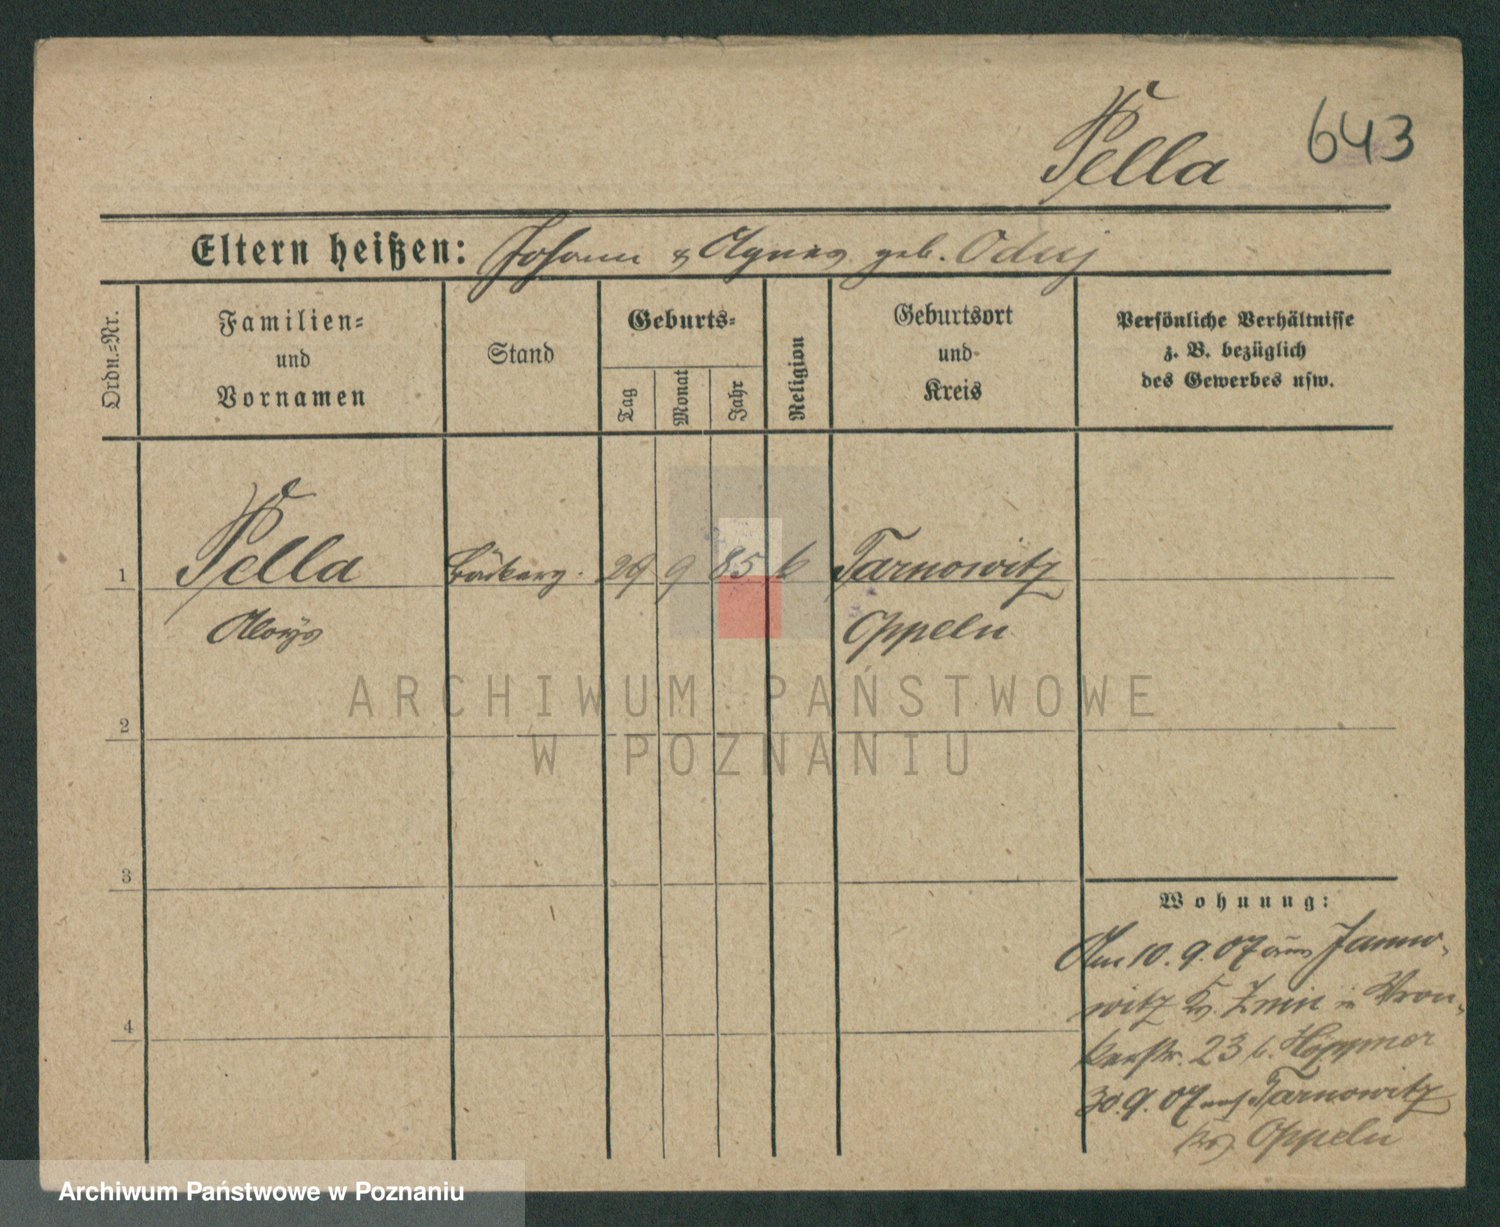 Pella 643
Eltern heißen: Johann & Agnes geb. Oduj
Ordn.=Nr.
Familien=
und
Vornamen
Stand
Geburts=
Tag
Monat
Jahr
Religion
Geburtsort
und
Kreis
Persönliche Verhältnisse
z. B. bezüglich
des Gewerbes usw.
1 Pella 29 9 85 k Tarnowitz
Aloys Oppeln
2
3
4
Wohnung:
Am 10.9.07 aus Janno-
witz Kr. Znin in Wron-
kerstr. 23 b. Höppner
30.9.07 nach Tarnowitz
Kr. Oppeln
ARCHIWUM PAŃSTWOWE
W POZNANIU
Archiwum Państwowe w Poznaniu